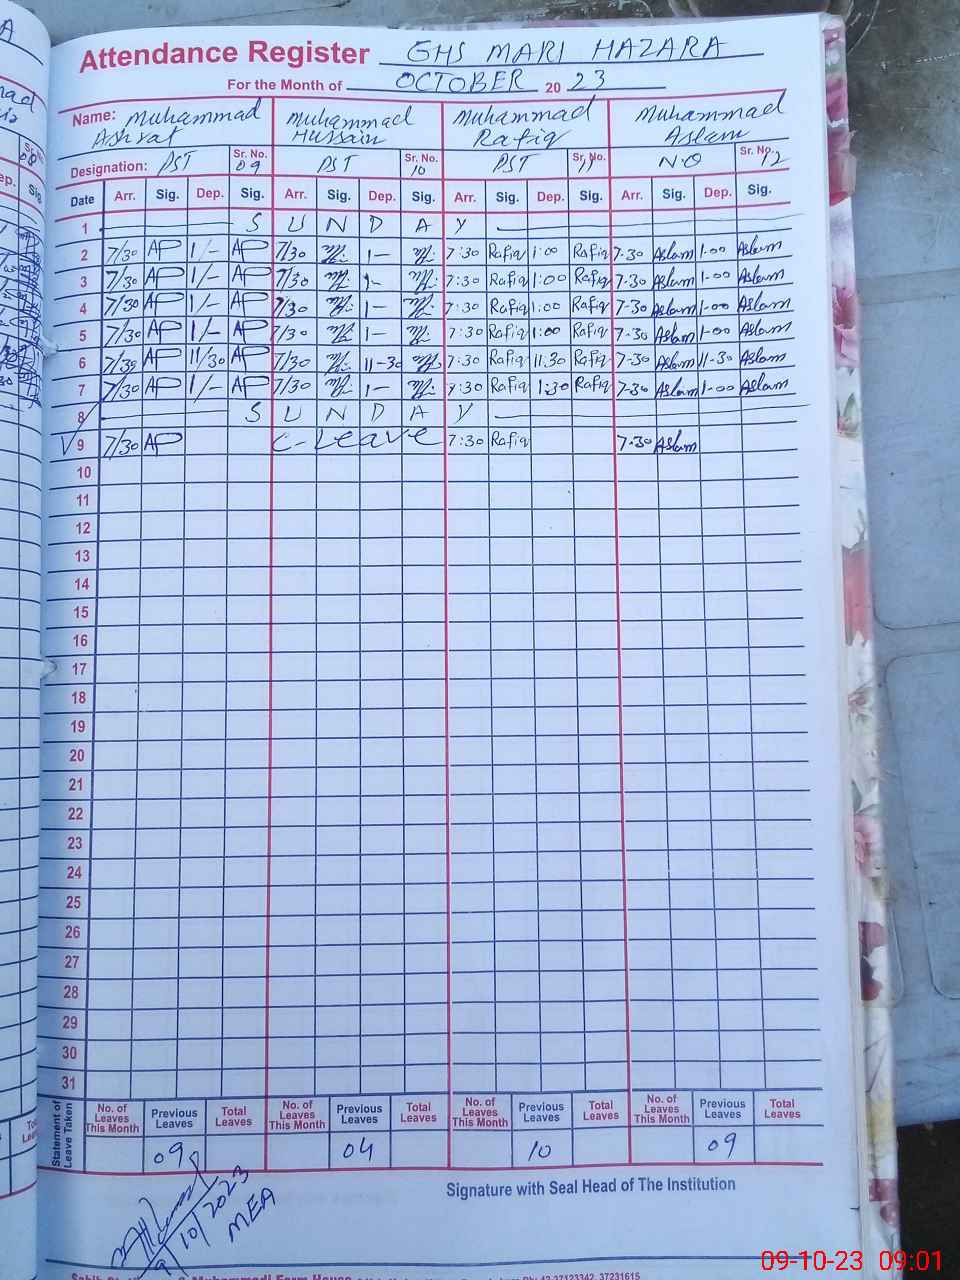 Attendance Register GHS MARI HAZARA
For the Month of OCTOBER 20 23
Name: Muhammad Ashraf Muhammad Hussain Muhammad Rafiq Muhammad Aslam
Designation: PST Sr. No. 09 PST Sr. No. 10 PST Sr. No. 11 N.Q Sr. No. 12
Date Arr. Sig. Dep. Sig. Arr. Sig. Dep. Sig. Arr. Sig. Dep. Sig. Arr. Sig. Dep. Sig.
1 S U N D A Y
2 7/30 AP 1/- AP 7/30 1- 7:30 Rafiq 1:00 Rafiq 7-30 Aslam 1-00 Aslam
3 7/30 AP 1/- AP 7/30 1- 7:30 Rafiq 1:00 Rafiq 7-30 Aslam 1-00 Aslam
4 7/30 AP 1/- AP 7/30 1- 7:30 Rafiq 1:00 Rafiq 7-30 Aslam 1-00 Aslam
5 7/30 AP 1/- AP 7/30 1- 7:30 Rafiq 1:00 Rafiq 7-30 Aslam 1-00 Aslam
6 7/30 AP 11/30 AP 7/30 11-30 7:30 Rafiq 11:30 Rafiq 7-30 Aslam 11-30 Aslam
7 7/30 AP 1/- AP 7/30 1- 7:30 Rafiq 1:30 Rafiq 7-30 Aslam 1-00 Aslam
8 S U N D A Y
9 7/30 AP C-Leave 7:30 Rafiq 7-30 Aslam
10
11
12
13
14
15
16
17
18
19
20
21
22
23
24
25
26
27
28
29
30
31
Statement of Leave Taken No. of Leaves This Month Previous Leaves Total Leaves No. of Leaves This Month Previous Leaves Total Leaves No. of Leaves This Month Previous Leaves Total Leaves No. of Leaves This Month Previous Leaves Total Leaves
09 04 10 09
9/10/2023
MEA
Signature with Seal Head of The Institution
09-10-23 09:01